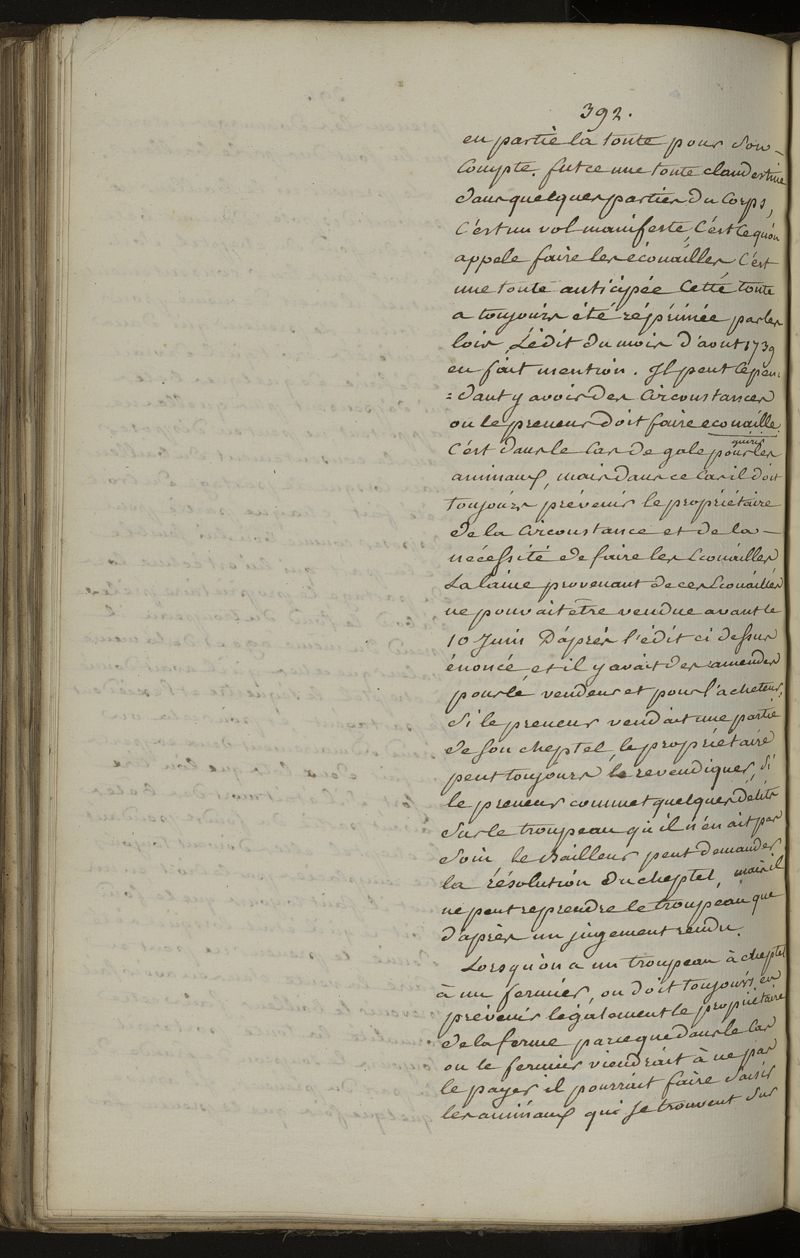 392.
en partie la tonte pour son
Compte. fut ce une tonte clandestine
dans quelques parties du Corps,
C'est un vol manifeste, C'est ce qu'on
appele faire les écouailles C'est
une tonte anticipée Cette tonte
a toujours été réprimée par les
lois, L'édit du mois d'aout 1739
en fait mention. Il peut Cepen
=dant y avoir des Circonstances
ou le preneur doit faire ecouaille
guérir
C'est dans le Cas de gale pour les
animaux, mais dans ce Cas il doit
toujours prévenir le propriétaire
de la Circonstance et de la
nécéssité de faire les Ecouailles
La laine provenant de ces Ecouailles
ne pouvait être vendue avant le
10 Juin D'après l'édit ci dessus
énoncé et il y avait des amendes
pour le vendeur et pour l'acheteur.
Si le preneur vendait une partie
de son cheptel, le propriétaire
peut toujours le revendiquer, Si
le preneur commet quelques délits
Sur le troupeau qu'il n'en ait pas
Soin le Bailleur peut demander
la résolution du cheptel, mais il
ne peut reprendre le troupeau que
d'après un jugement rendu.
Lorsqu'on a un troupeau à cheptel
à un fermier, on doit toujours en
prévenir légalement le propriétaire
de la ferme parceque dans le Cas
ou le fermier viendrait à ne pas
le payer il pourrait faire Saisir
les animaux qui se trouvent Sur